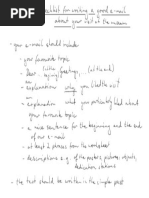 Checklist for writing a good e-mail
about your visit of the museum
- your e-mail should include:
- your favourite topic
- greetings, (at the end)
- explanation why you liked the visit
- explanation what you particularly liked about
your favourite topic
- a nice sentences for the beginning and the ends
of our e-mail
- at least 2 phrases from the worksheet
- descriptions e.g. of the posters, pictures, objects,
dedication, stations
- the text should be written in the simple past